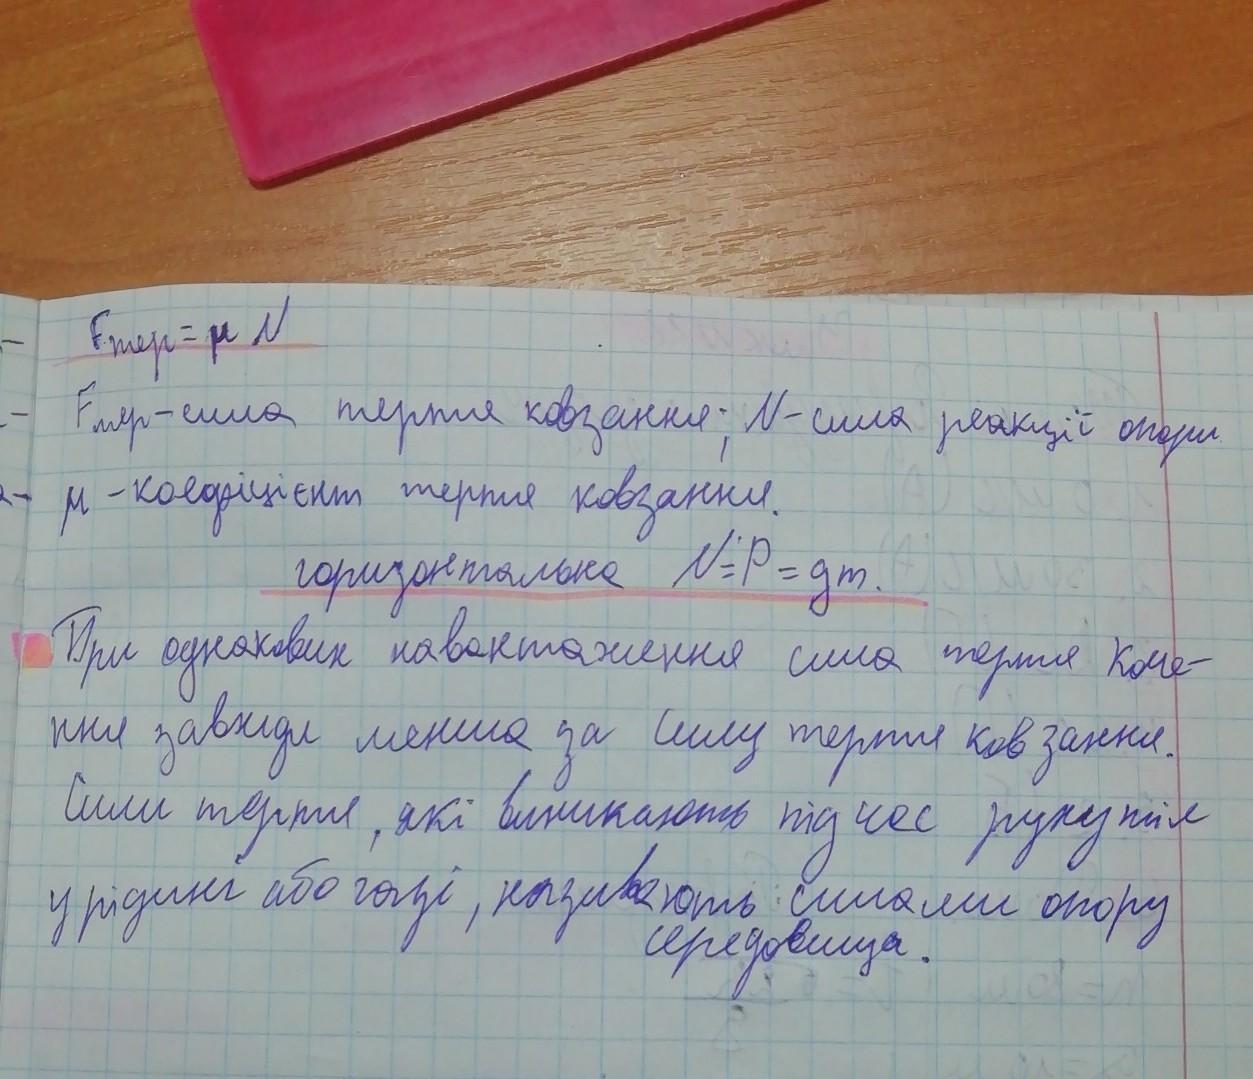 Fтер = μ N
Fтер – сила тертя ковзання; N – сила реакції опори
μ – коефіцієнт тертя ковзання.
горизонтальна N = P = gm.
При однакових навантаження сила тертя коче-
ння завжди менша за силу тертя ковзання.
Сили тертя, які виникають під час руху тіл
у рідині або газі, називають силами опору
середовища.